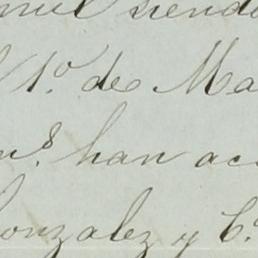 mil siendo
1º de Ma
han aco
Gonzalez y Cª